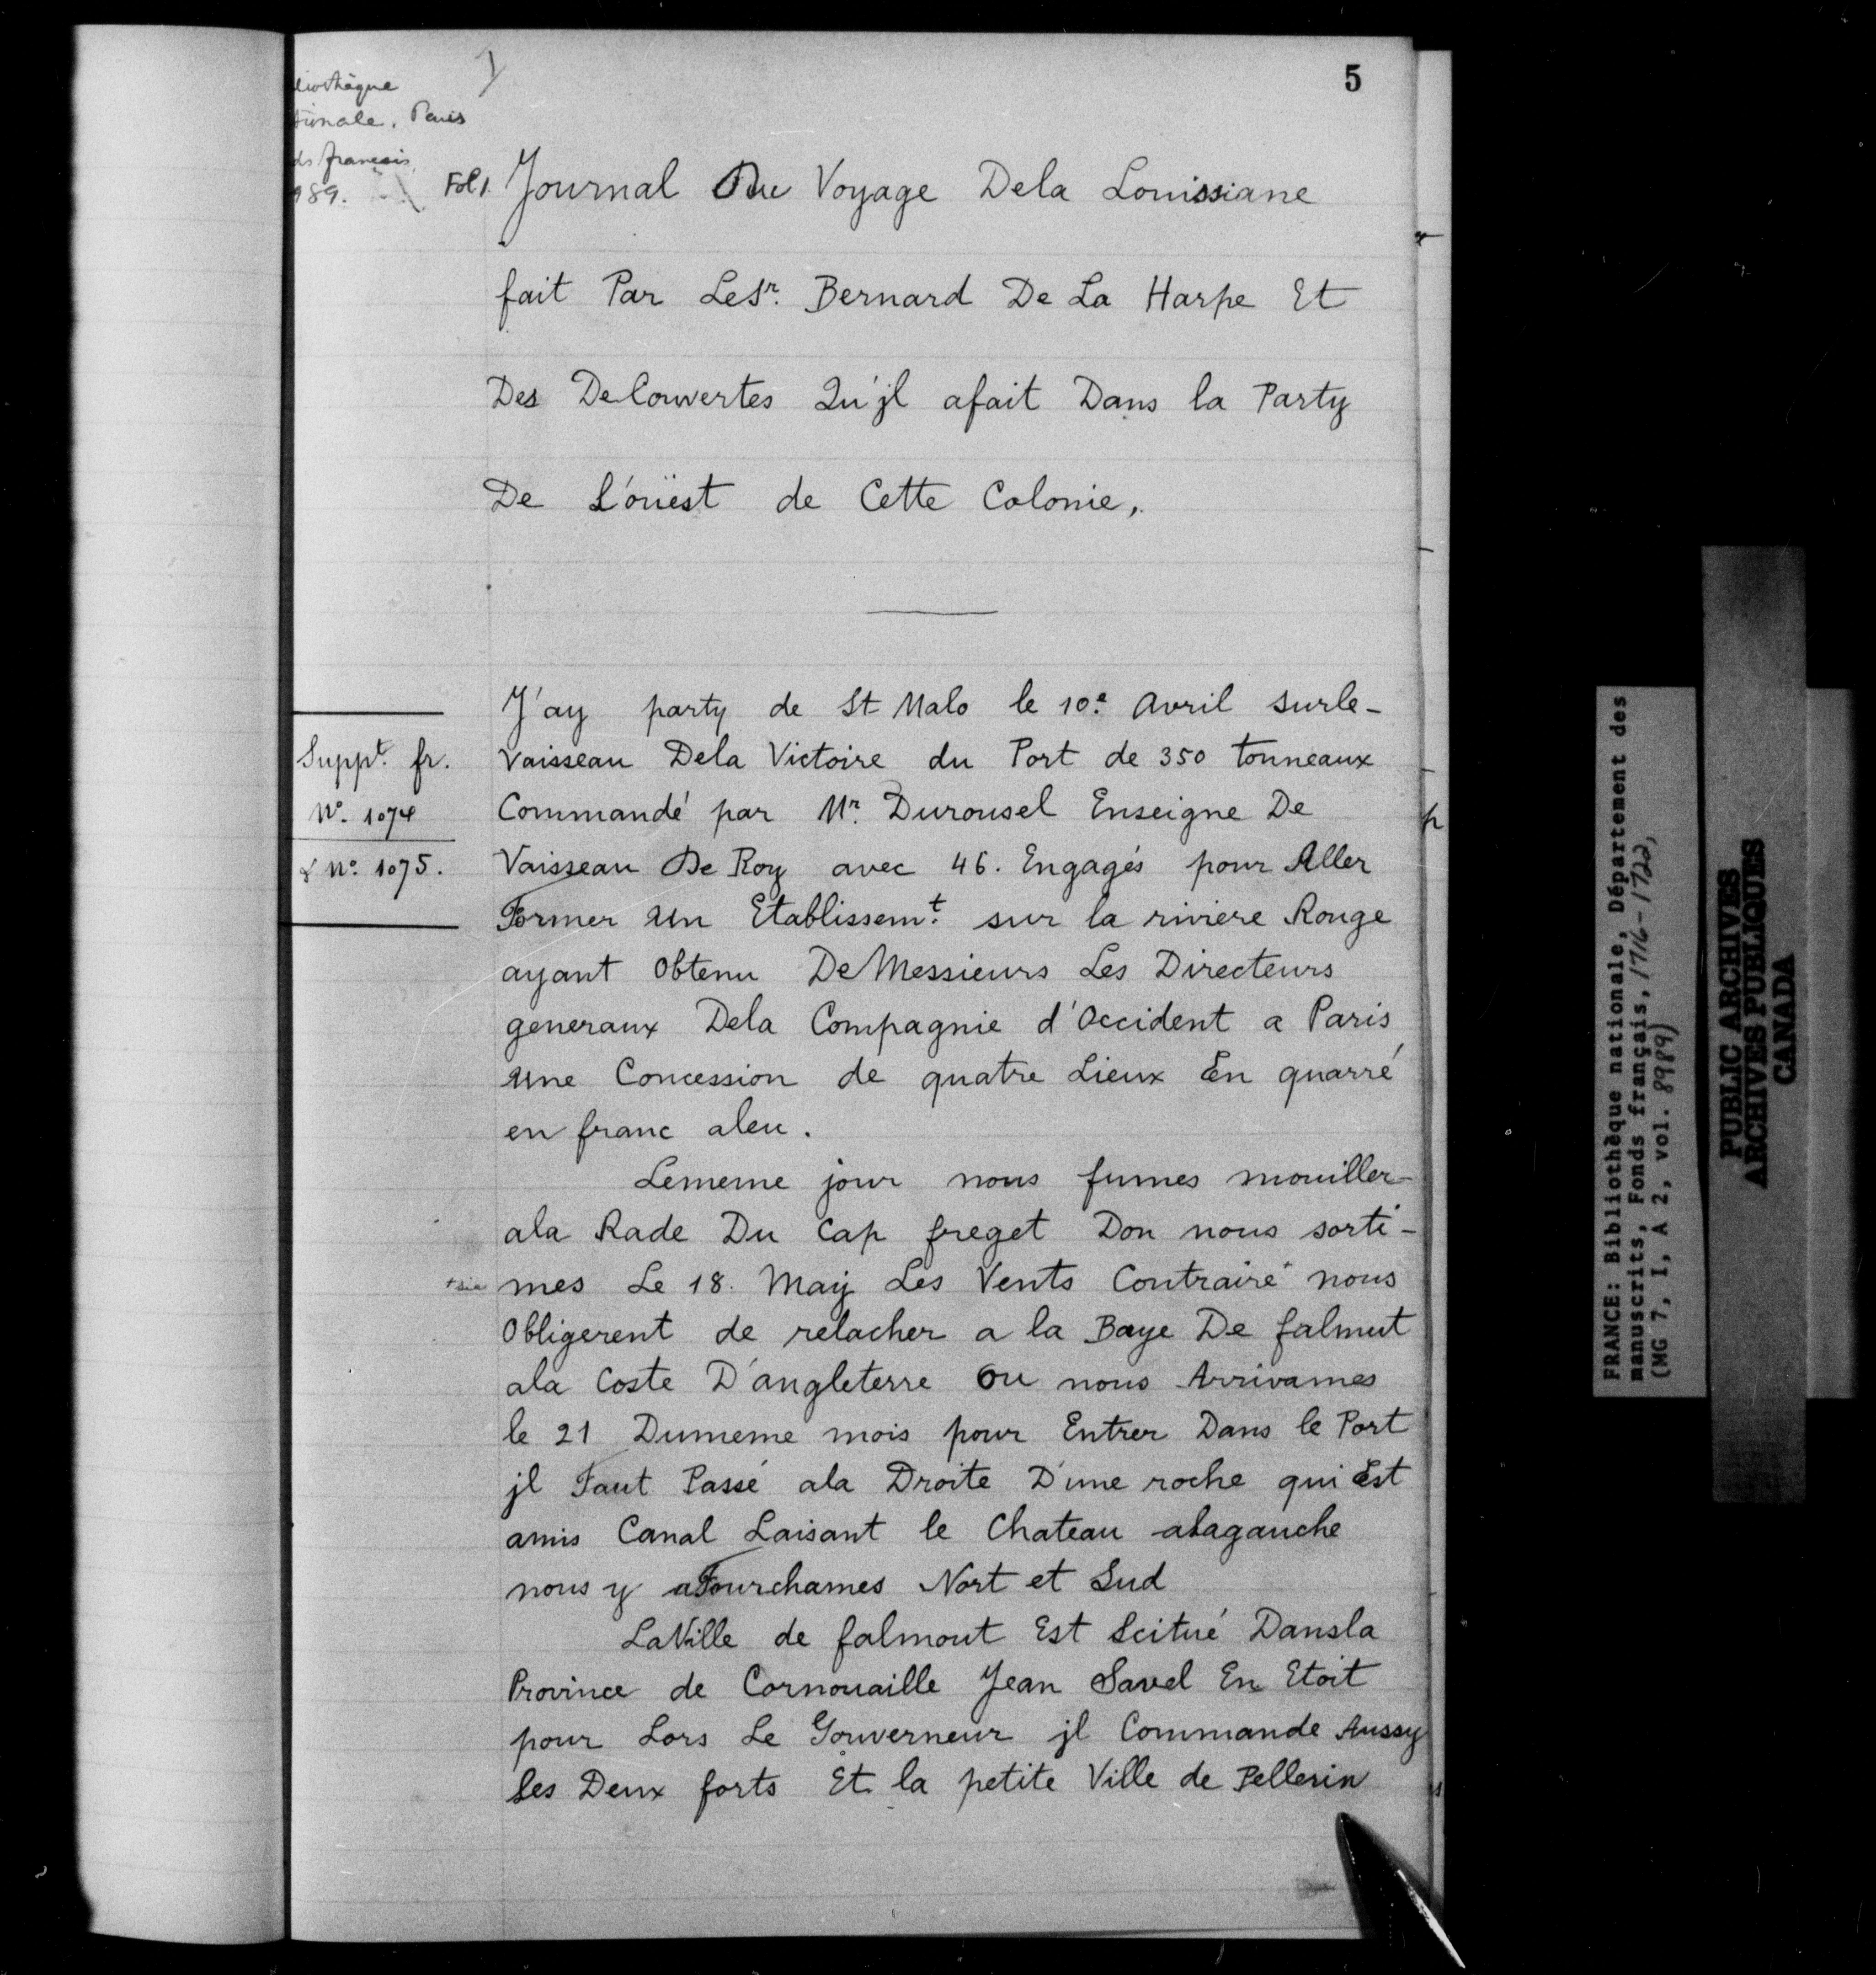 5
liothèque
tionale, Paris
ds français
989.
Fol 1. Journal Du Voyage Dela Louissiane
fait Par LeSr. Bernard De La Harpe Et
Des Decouvertes Qu'jl afait Dans la Party
De L'oüest de Cette Colonie,
J'ay party de St Malo le 10e. Avril surle-
Vaisseau Dela Victoire du Port de 350 tonneaux
Commandé par Mr. Durousel Enseigne De
Vaisseau De Roy avec 46. Engagés pour Aller
Former Un Etablissemt. sur la riviere Rouge
ayant Obtenu De Messieurs Les Directeurs
generaux Dela Compagnie d'Occident a Paris
Une Concession de quatre Lieux En quarré
en franc aleu.
Suppt. fr.
No. 1074
& No. 1075.
Lememe jour nous fumes mouiller-
ala Rade Du Cap freget Don nous sorti-
mes Le 18. May Les Vents Contraire+ nous
+sic
Obligerent de relacher a la Baye De falmut
ala Coste D'angleterre Ou nous Arrivames
le 21 Dumeme mois pour Entrer Dans le Port
jl Faut Passé ala Droite D'une roche qui Est
amis Canal Laisant le Chateau alagauche
nous y aFourchames Nort et Sud
LaVille de falmout Est Scitué Dansla
Province de Cornouaille Jean Savel En Etoit
pour Lors Le Gouverneur jl Commande Aussy
les Deux forts Et la petite Ville de Pellerin
FRANCE: Bibliothèque nationale, Département des
manuscrits, Fonds français, 1716-1722,
(MG 7, I, A 2, vol. 8989)
PUBLIC ARCHIVES
ARCHIVES PUBLIQUES
CANADA